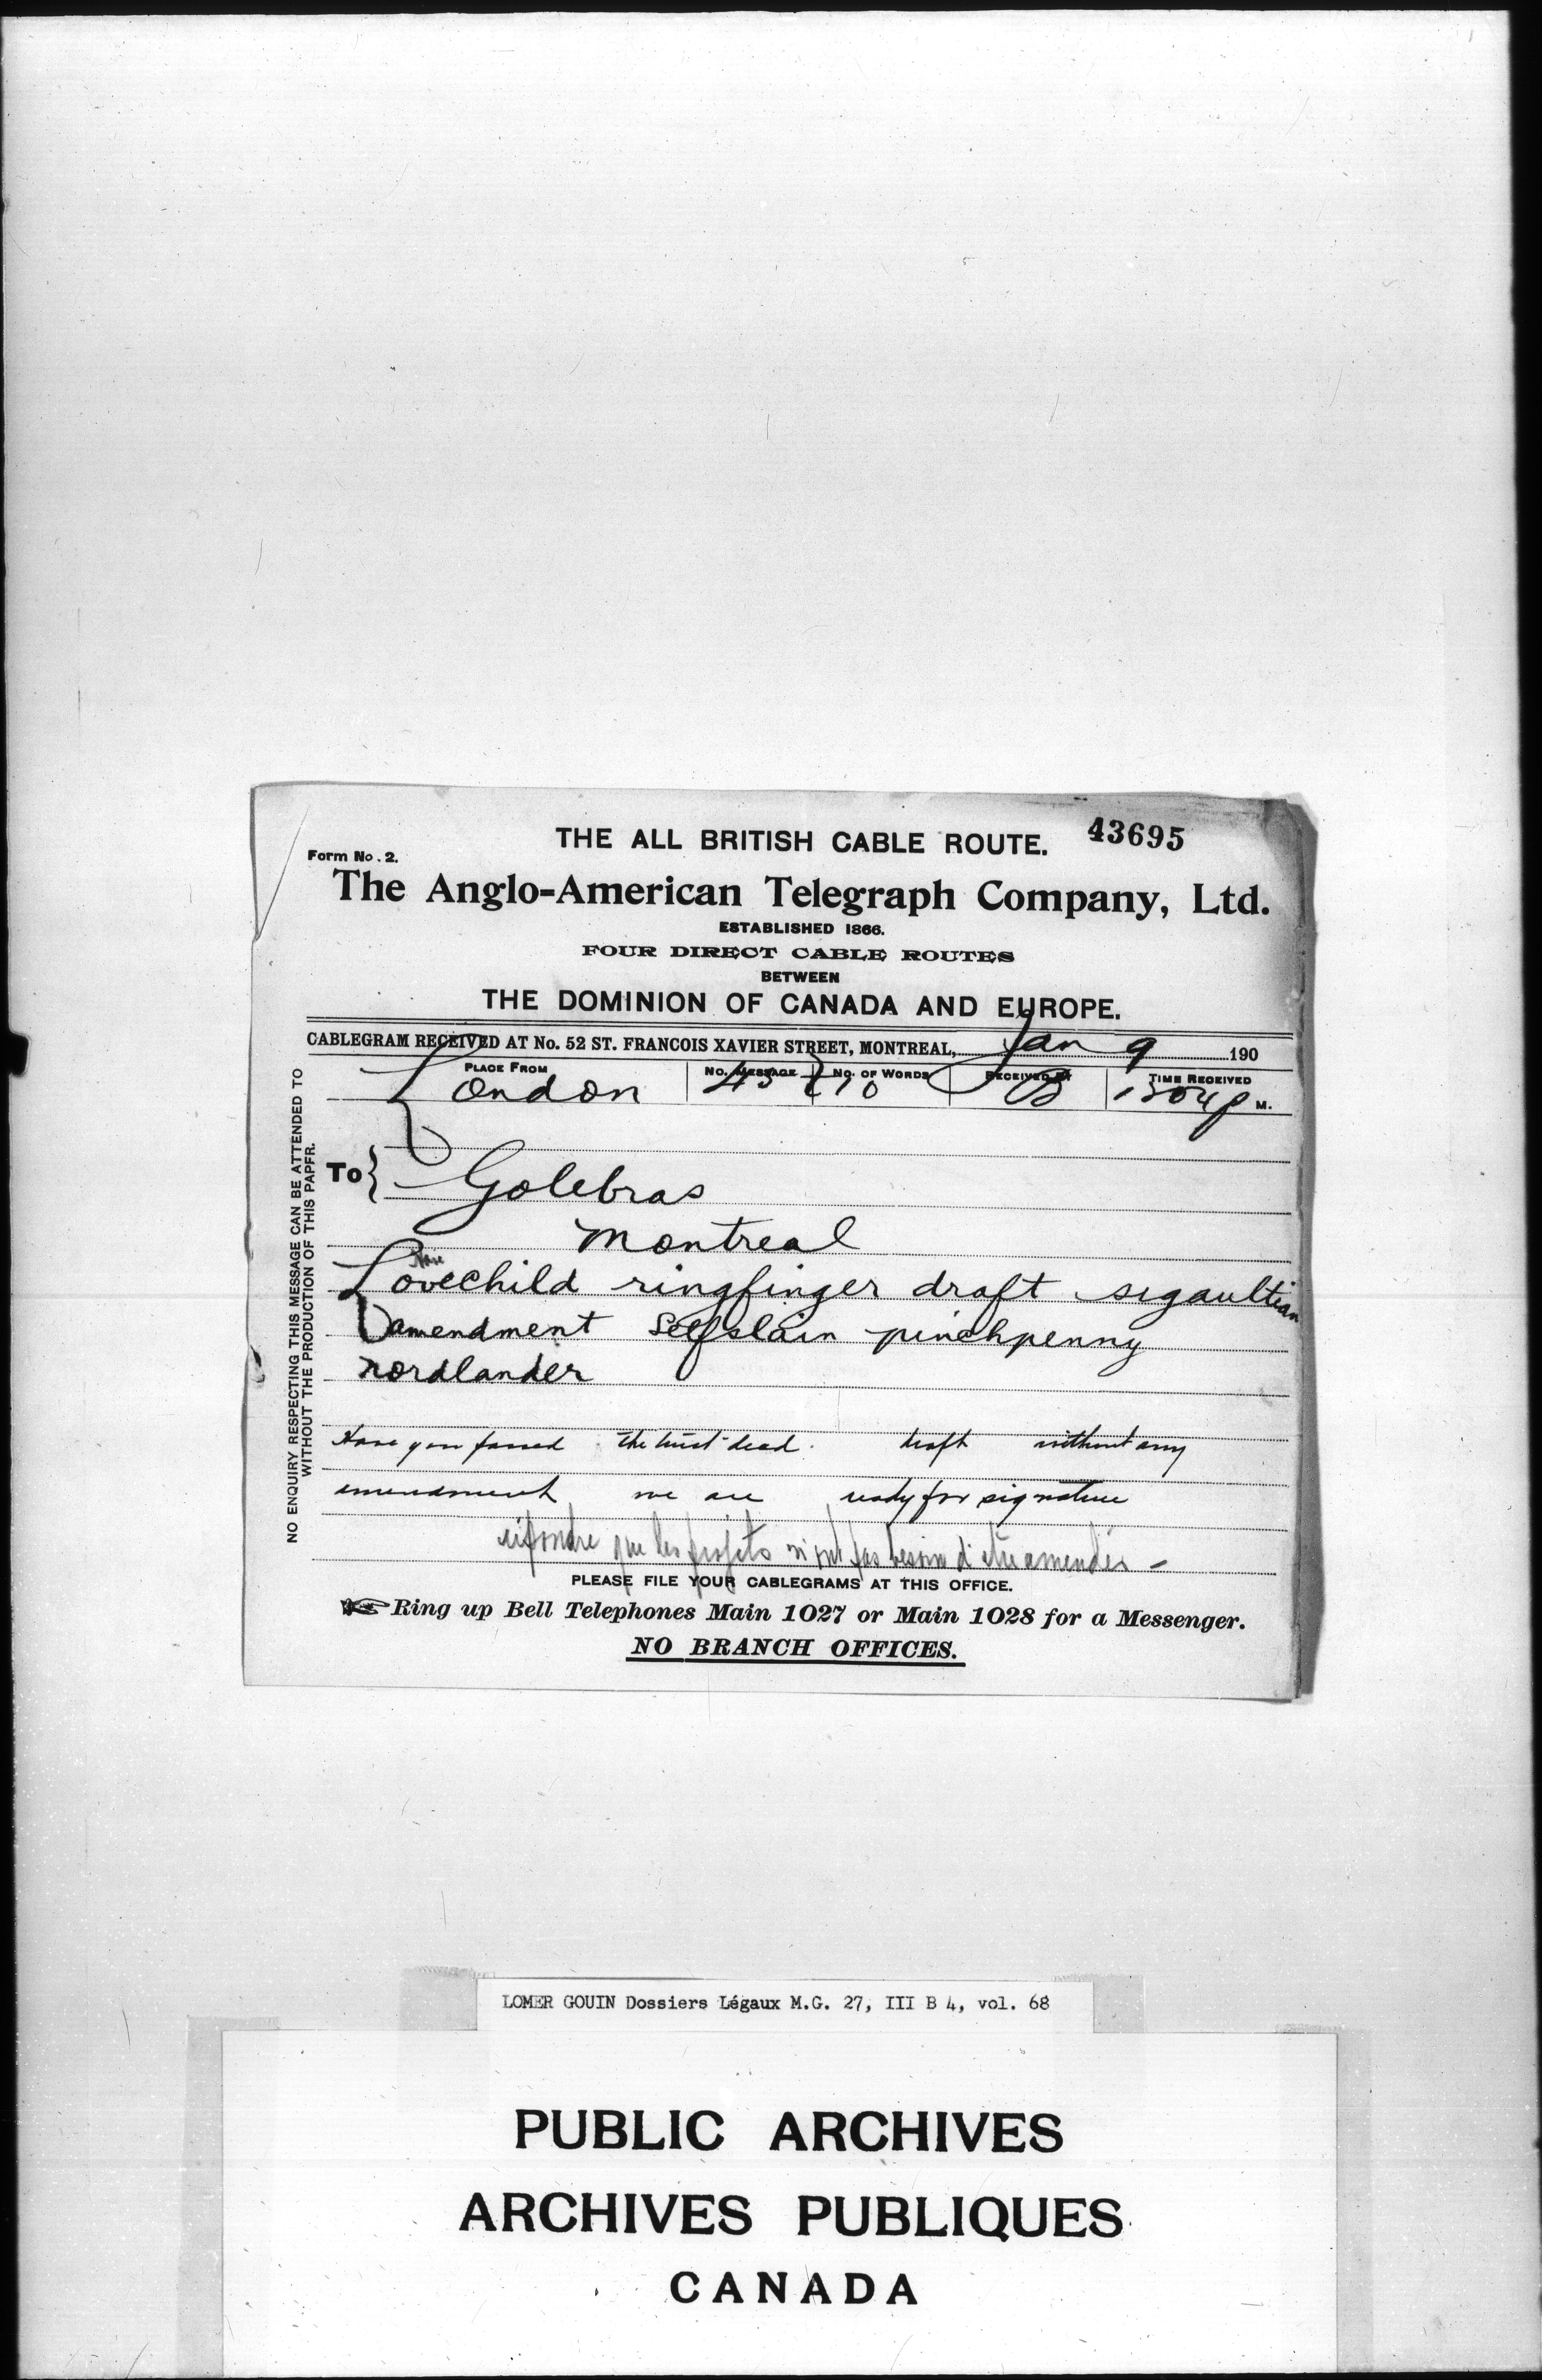 THE ALL BRITISH CABLE ROUTE. 43695
Form No. 2.
The Anglo-American Telegraph Company, Ltd.
ESTABLISHED 1866.
FOUR DIRECT CABLE ROUTES
BETWEEN
THE DOMINION OF CANADA AND EUROPE.
CABLEGRAM RECEIVED AT No. 52 ST. FRANCOIS XAVIER STREET, MONTREAL, Jan 9 190
PLACE FROM NO. MESSAGE NO. OF WORDS RECEIVED BY TIME RECEIVED
London 45 10 M.
To Golebras
Montreal
Lovechild ringfinger draft sigaultian
amendment Selfslain pinchpenny
nordlander
Have you passed the trust deed. draft without any
amendment we are ready for signature
répondre que les projets n'ont pas besoin d'être amendés -
PLEASE FILE YOUR CABLEGRAMS AT THIS OFFICE.
Ring up Bell Telephones Main 1027 or Main 1028 for a Messenger.
NO BRANCH OFFICES.
NO ENQUIRY RESPECTING THIS MESSAGE CAN BE ATTENDED TO
WITHOUT THE PRODUCTION OF THIS PAPER.
LOMER GOUIN Dossiers Légaux M.G. 27, III B 4, vol. 68
PUBLIC ARCHIVES
ARCHIVES PUBLIQUES
CANADA